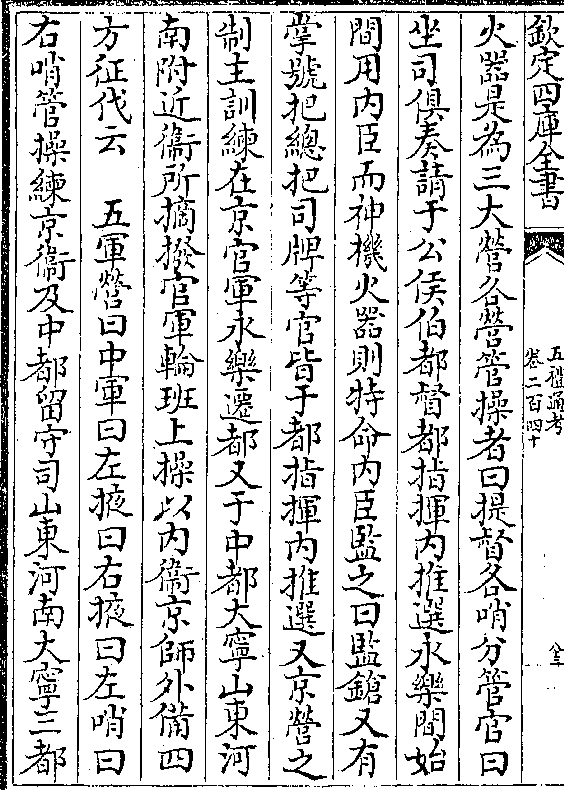 欽定四庫全書
五禮通考
卷二百四十
全
火器是為三大營各營管操者曰提督各哨分管官曰
坐司俱奏請于公侯伯都督都指揮内推選永樂間始
間用内臣而神機火器則特命内臣監之曰監鎗又有
掌號把總把司牌等官皆于都指揮内推選又京營之
制主訓練在京官軍永樂遷都又于中都大寧山東河
南附近衞所摘撥官軍輪班上操以内衞京師外備四
方征伐云　五軍營曰中軍曰左掖曰右掖曰左哨曰
右哨管操練京衞及中都留守司山東河南大寧三都